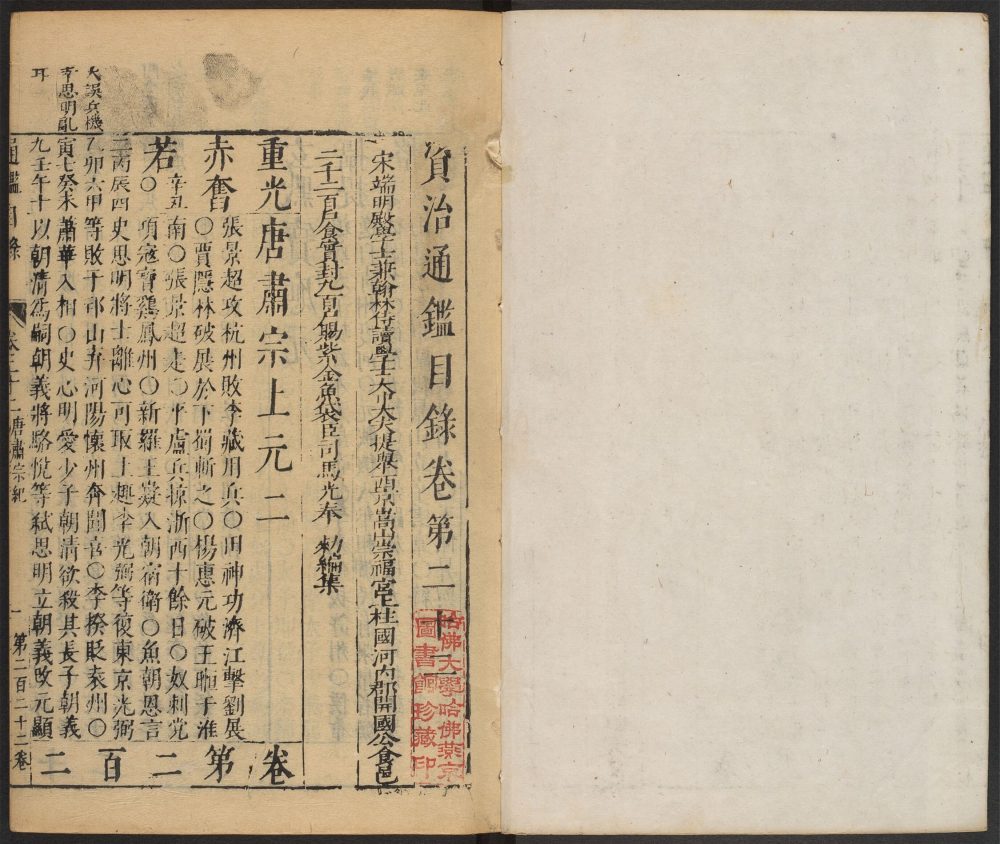 資治通鑑目錄卷第二十二
宋端明殿學士兼翰林侍讀學士太中大夫提舉西京嵩山崇福宮上柱國河內郡開國公食邑
二千二百戶食實封九百戶賜紫金魚袋臣司馬光奉 勑編集
重光唐肅宗上元二
赤奮
張景超攻杭州敗李藏用兵〇田神功濟江擊劉展
〇賈隱林破展於下蜀斬之〇楊惠元破王暅于淮
若
辛丑
南〇張景超走〇平盧兵掠浙西十餘日〇奴剌党
項寇寶雞鳳州〇新羅王嶷入朝宿衛〇魚朝恩言
二丙辰四史思明將士離心可取上趣李光弼等復東京光弼
乙卯六甲等敗于邙山弃河陽懷州奔聞喜〇李揆貶袁州〇
寅七癸未蕭華入相〇史思明愛少子朝清欲殺其長子朝義
九壬午十以朝清爲嗣朝義將駱悅等弒思明立朝義改元顯
卷第二百二
大誤兵機
李思明亂
耳
通鑑目錄
卷二十二唐肅宗紀
一
第二百二十二卷
哈佛大學哈佛燕京
圖書館珍藏印